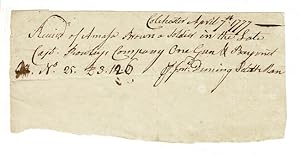 Colchester April 7th 1777
Receivd of Amasa Brown a Soldier in the Late
Capt. Rowleys Company One Gun & Bayonet
No. 25. £3.12.0
Deming